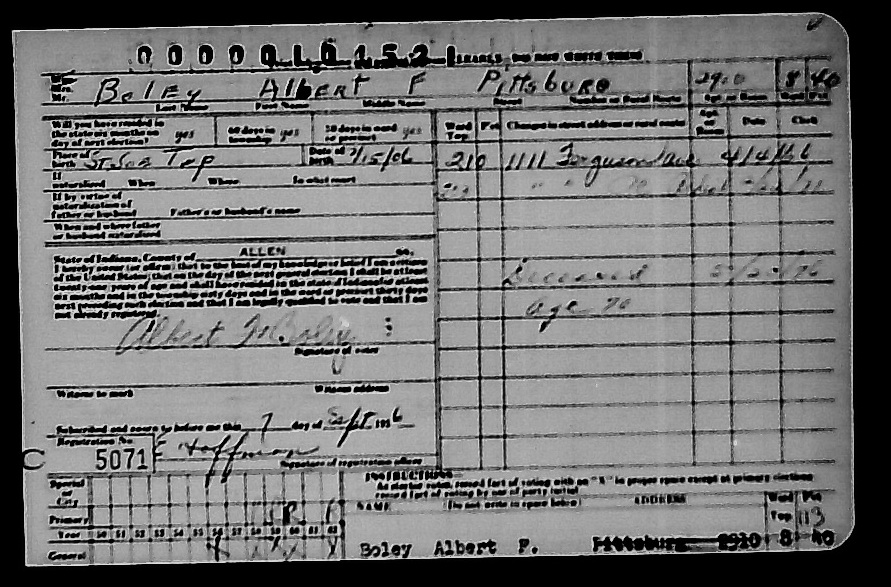 BOLEY ALBERT F PITTSBURG 2910 8 40
Last Name First Name Middle Name Street Number or Rural Route
Will you have resided in the state six months on day of next election? yes 60 days in township yes 30 days in ward or precinct yes
Ward Top Pct Changes in street address or rural route Date Clerk
Place of birth St Joe Twp Date of birth 7/15/06
210 1111 Ferguson Ave 4/4/66
If naturalized When Where In what court
If by virtue of naturalization of father or husband Father's or husband's name
When and where father or husband naturalized
State of Indiana, County of ALLEN ss.
I hereby swear (or affirm) that to the best of my knowledge or belief I am a citizen
of the United States; that on the day of the next general election I shall be at least
twenty-one years of age and shall have resided in the state of Indiana for at least
six months and in the township sixty days and in the ward or precinct thirty days
next preceding such election and that I am legally qualified to vote and that I am
not already registered.
Deceased
age 70
Albert F. Boley
Signature of voter
Witness to mark Witness address
Subscribed and sworn to before me this 7 day of Sept 1956
Registration No
C 5071 Hoffman
Signature of registration officer
INSTRUCTIONS
Special or City
Primary
Year 50 51 52 53 54 55 56 57 58 59 60 61 62
General
NAME (Do not write in space below) ADDRESS Ward Pct
Top 113
Boley Albert F. Pittsburg 2910 8 40